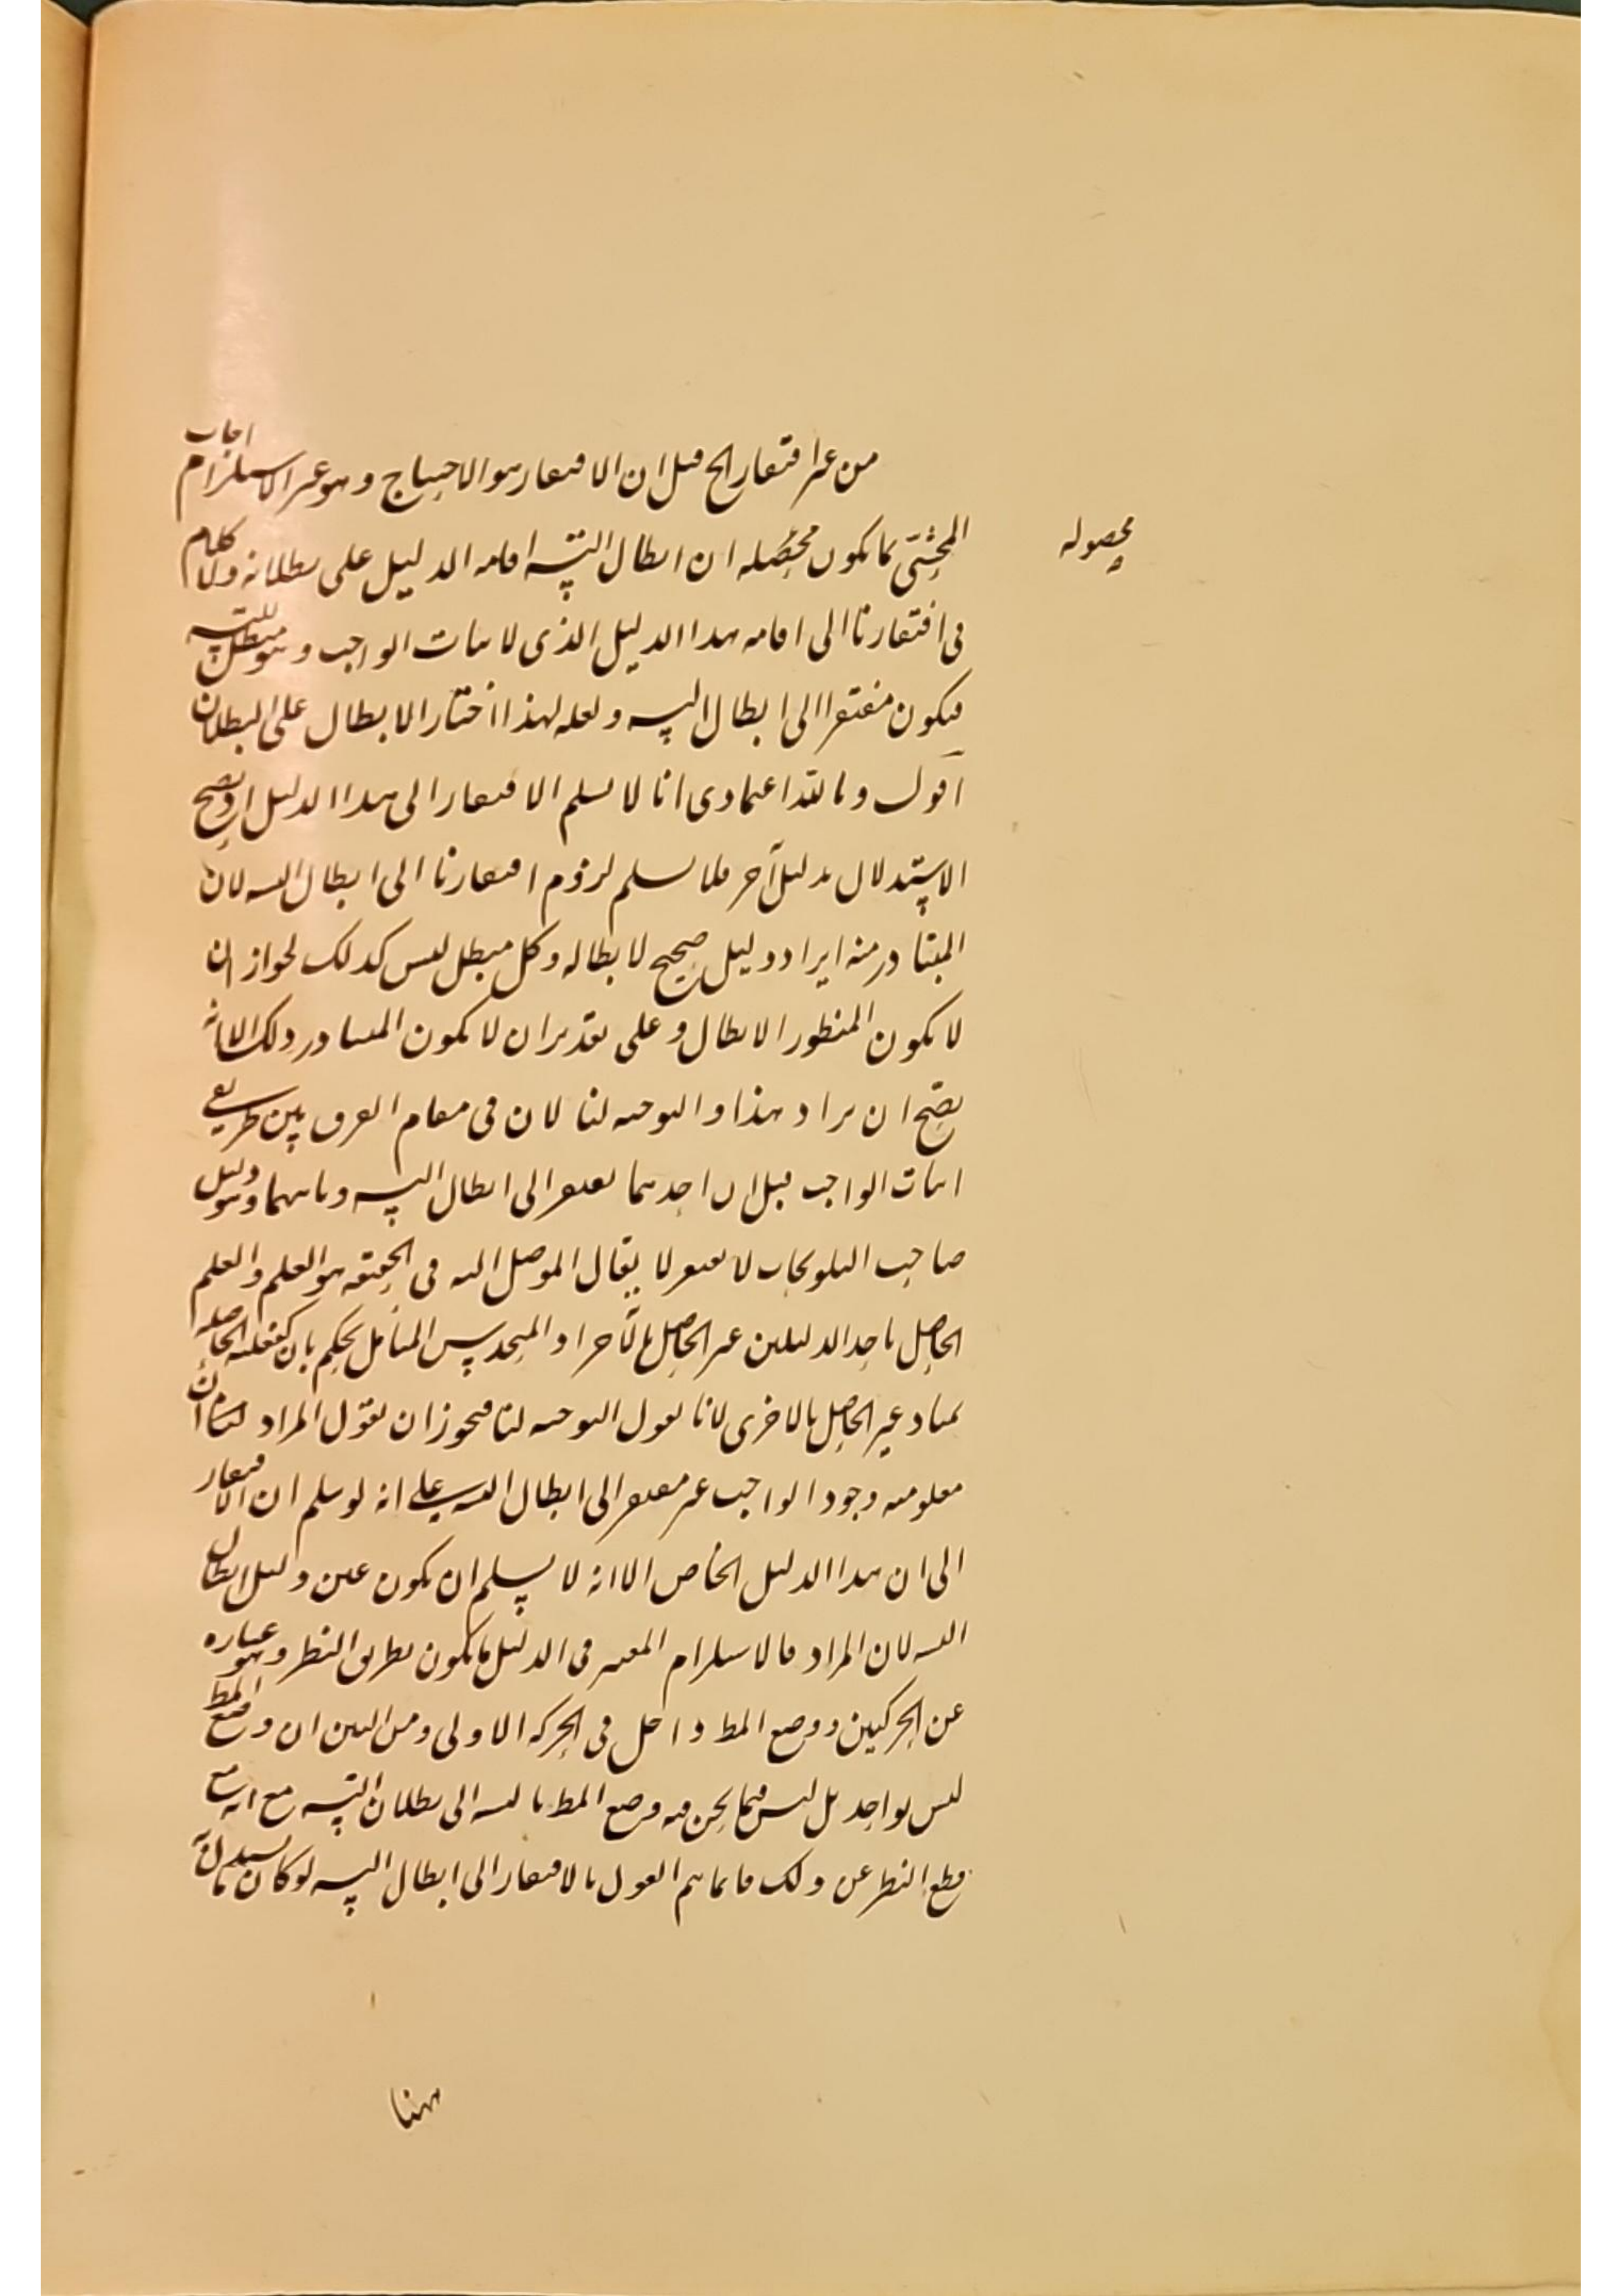 من غير افتقار الخ قيل ان الافتقار هو الاحتياج وهو غير الاستلزام اجاب
المحشى بما يكون محصله ان ابطال التسـ اقامه الدليل على بطلانه ولا كلام
محصوله
فى افتقارنا الى اقامه هذا الدليل الذى لاثبات الواجب وهو مبطل للتسـ
فيكون مفتقرا الى ابطال التسـ ولعله لهذا اختار الابطال على البطلان
اقول وبالله اعتمادى انا لا نسلم الافتقار الى هذا الدليل اذ يصح
الاستدلال بدليل آخر فلا نسلم لزوم افتقارنا الى ابطال التسـ لان
المتبادر منه ايراد دليل صحيح لابطاله وكل مبطل ليس كذلك لجواز ان
لا يكون المنظور الابطال وعلى تقدير ان لا يكون المتبادر ذلك الا انه
يصح ان يراد هذا والتوجيه لنا لان فى مقام الفرق بين طريقى
اثبات الواجب قيل ان احدهما يفتقر الى ابطال التسـ وثانيهما وهو دليل
صاحب التلويحات لا يفتقر لا يقال الموصل اليه فى الحقيقه هو العلم والعلم
الحاصل باحد الدليلين غير الحاصل بالآخر اذ المتحدس المتامل يحكم بان الحاصله
غير الحاصل بالاخرى لانا نقول التوجيه لنا فيجوز ان نقول المراد ان
معلوميه وجود الواجب غير مفتقر الى ابطال التسـ على انه لو سلم ان الافتقار
الى ان هذا الدليل الخاص الا انه لا يسلم ان يكون عين دليل ابطال
التسـ لان المراد بالاستلزام المعتبر فى الدليل ما يكون بطريق النظر وهو عباره
عن الحركتين ووضع المط داخل فى الحركه الاولى ومن البين ان وضع المط
ليس بواحد بل ليس فيما نحن فيه وضع المط بالنسبه الى بطلان التسـ مع انه مع
قطع النظر عن ذلك فانما يتم القول بالافتقار الى ابطال التسـ لو كان
هنا